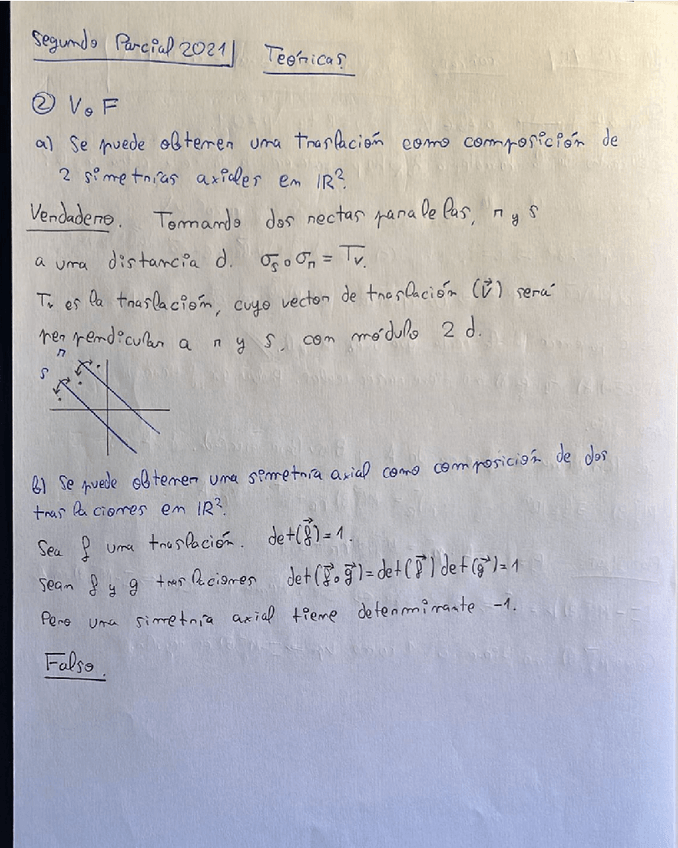 Segundo Parcial 2021 Teóricas.
② V o F
a) Se puede obtener una traslación como composición de
2 simetrías axiales en IR².
Verdadero. Tomando dos rectas paralelas, r y s
a una distancia d. σₛ∘σᵣ = Tᵥ.
Tᵥ es la traslación, cuyo vector de traslación (v⃗) será
perpendicular a r y s, con módulo 2 d.
r
s
b) Se puede obtener una simetría axial como composición de dos
traslaciones en IR².
Sea f una traslación. det(f⃗)=1.
sean f y g traslaciones det(f⃗∘g⃗)=det(f⃗) det(g⃗)=1
Pero una simetría axial tiene determinante -1.
Falso.